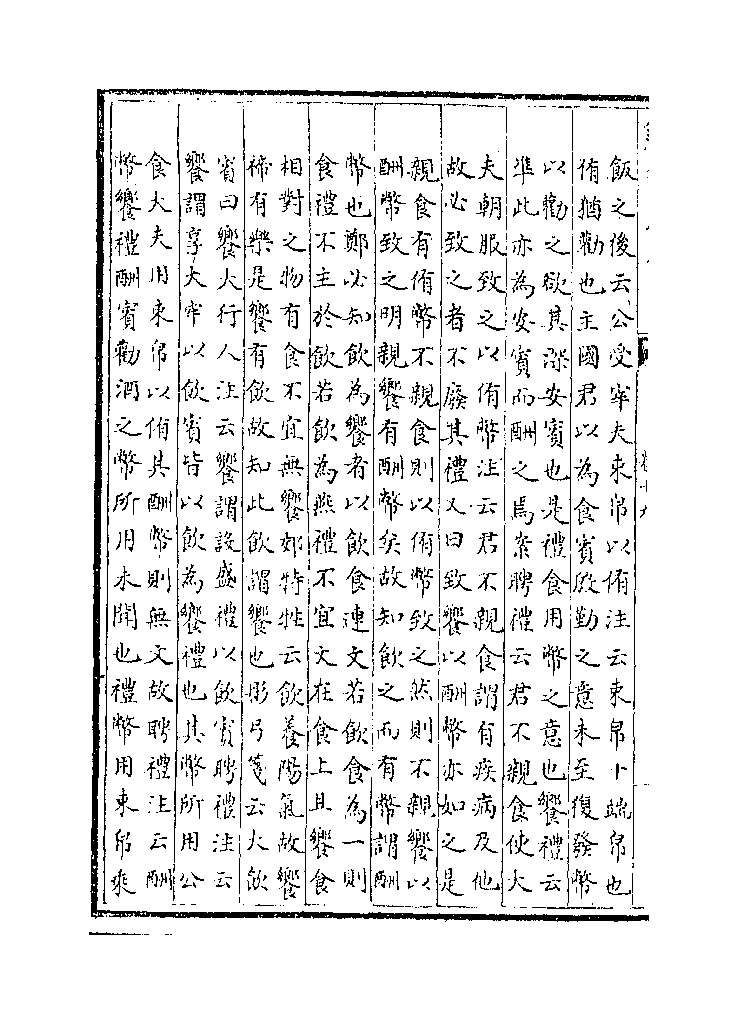 飯之後云公受宰夫束帛以侑注云束帛十端帛也
侑猶勸也主國君以為食賓殷勤之意未至復發幣
以勸之欲其深安賓也是禮食用幣之意也饗禮云
準此亦為安賓而酬之焉案聘禮云君不親食使大
夫朝服致之以侑幣注云君不親食謂有疾病及他
故必致之者不廢其禮又曰致饗以酬幣亦如之是
親食有侑幣不親食則以侑幣致之然則不親饗以
酬幣致之明親饗有酬幣矣故知飲之而有幣謂酬
幣也鄭必知飲為饗者以飲食連文若飲食為一則
食禮不主於飲若飲為燕禮不宜文在食上且饗食
相對之物有食不宜無饗郊特牲云飲養陽氣故饗
禘有樂是饗有飲故知此飲謂饗也彤弓箋云大飲
賓曰饗大行人注云饗謂設盛禮以飲賓聘禮注云
饗謂享大牢以飲賓皆以飲為饗禮也其幣所用公
食大夫用束帛以侑其酬幣則無文故聘禮注云酬
幣饗禮酬賓勸酒之幣所用未聞也禮幣用束帛乘
卷十九